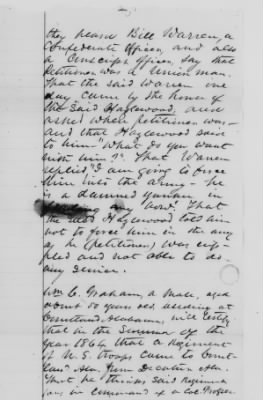 they heard Bill Warren, a
Confederate Officer, and also
a Conscript officer, say that
Petitioner was a Union man.
That the said Warren one
day came by the house of
the said Hazlewood, and
asked where petitioner was—
and that Hazlewood said
to him "What do you want
with him?" That Warren
replied "I am going to force
him into the army - he
is a damned yankee in
any how". That
the said Hazlewood told him
not to force him in the army
as he (petitioner) was crip-
pled and not able to do
any service.
Wm C. Graham, a male, aged
about 50 years old residing at
Courtland, Alabama, will testify
that in the Summer of the
year 1864 that a Regiment
of U.S. troops came to Court-
land Ala. from Decatur Ala.
that he thinks said Regiment
was in command of a Col.